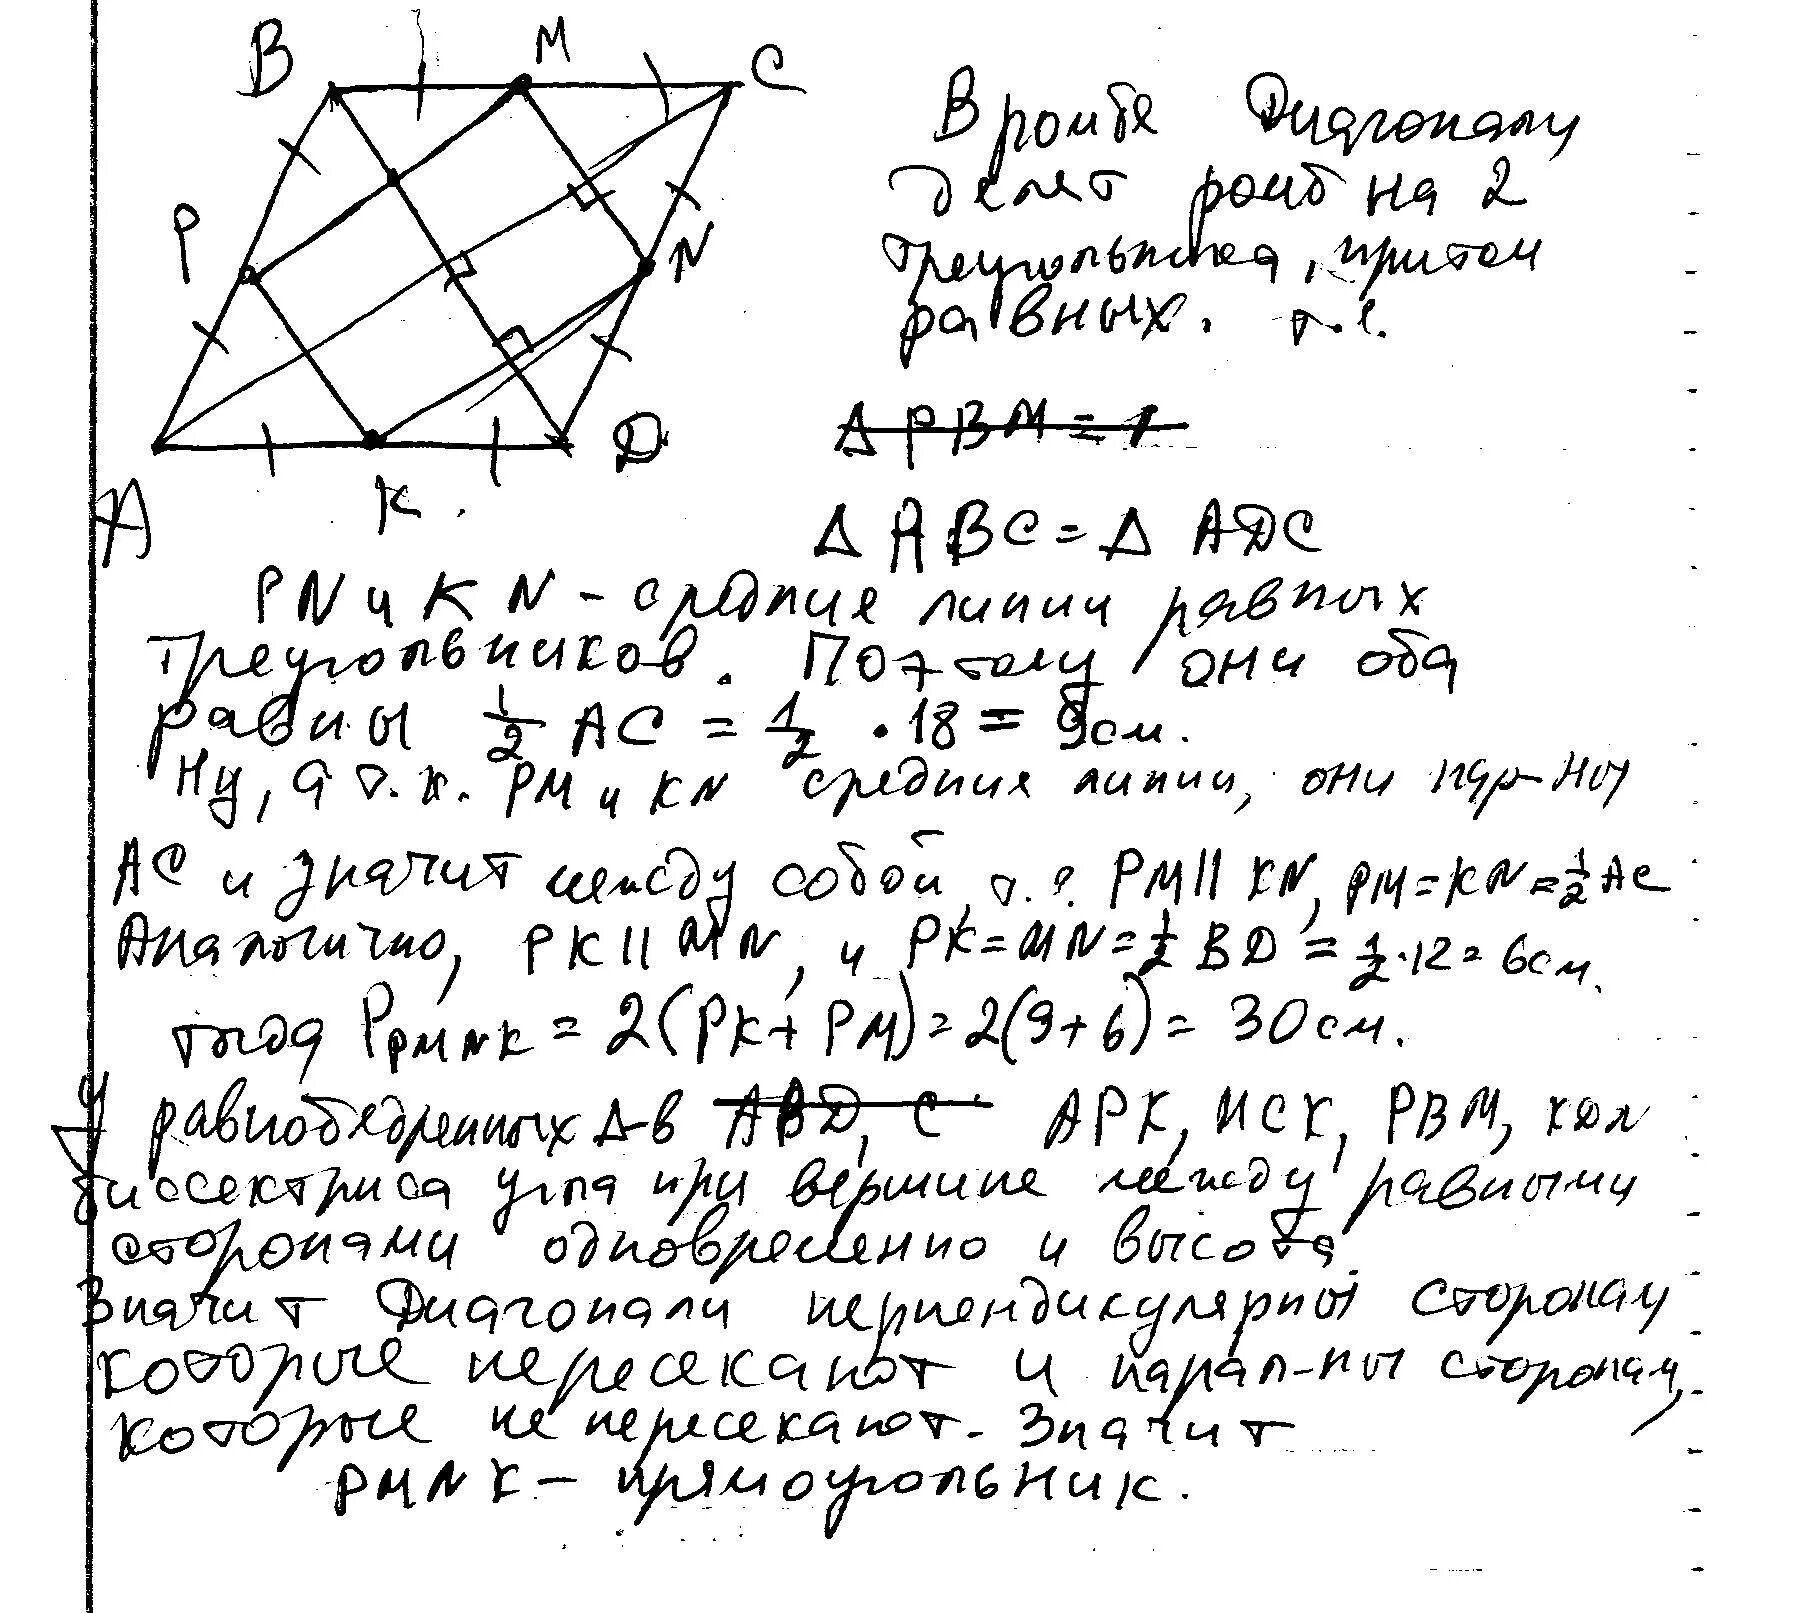 B M C
P N
A K. D
В ромбе Диагонали
делят ромб на 2
треугольника, притом
равных. т.е.
Δ PBM = 1
Δ ABC = Δ ADC
PN и KN - средние линии равных
треугольников. Поэтому они оба
равны 1/2 AC = 1/2 · 18 = 9см.
Ну, а т.к. PM и KN средние линии, они пар-ны
AC и значит между собой, т.е. PM || KN, PM = KN = 1/2 AC
Аналогично, PK || MN, и PK = MN = 1/2 BD = 1/2 · 12 = 6см.
тогда P PMNK = 2(PK + PM) = 2(9+6) = 30см.
У равнобедренных Δ-в ABD, C APK, MCK, PBM, KDN
биссектриса угла при вершине между равными
сторонами одновременно и высота.
Значит Диагонали перпендикулярны сторонам
которые пересекают и парал-ны сторонам,
которые не пересекают. Значит
PMNK - прямоугольник.